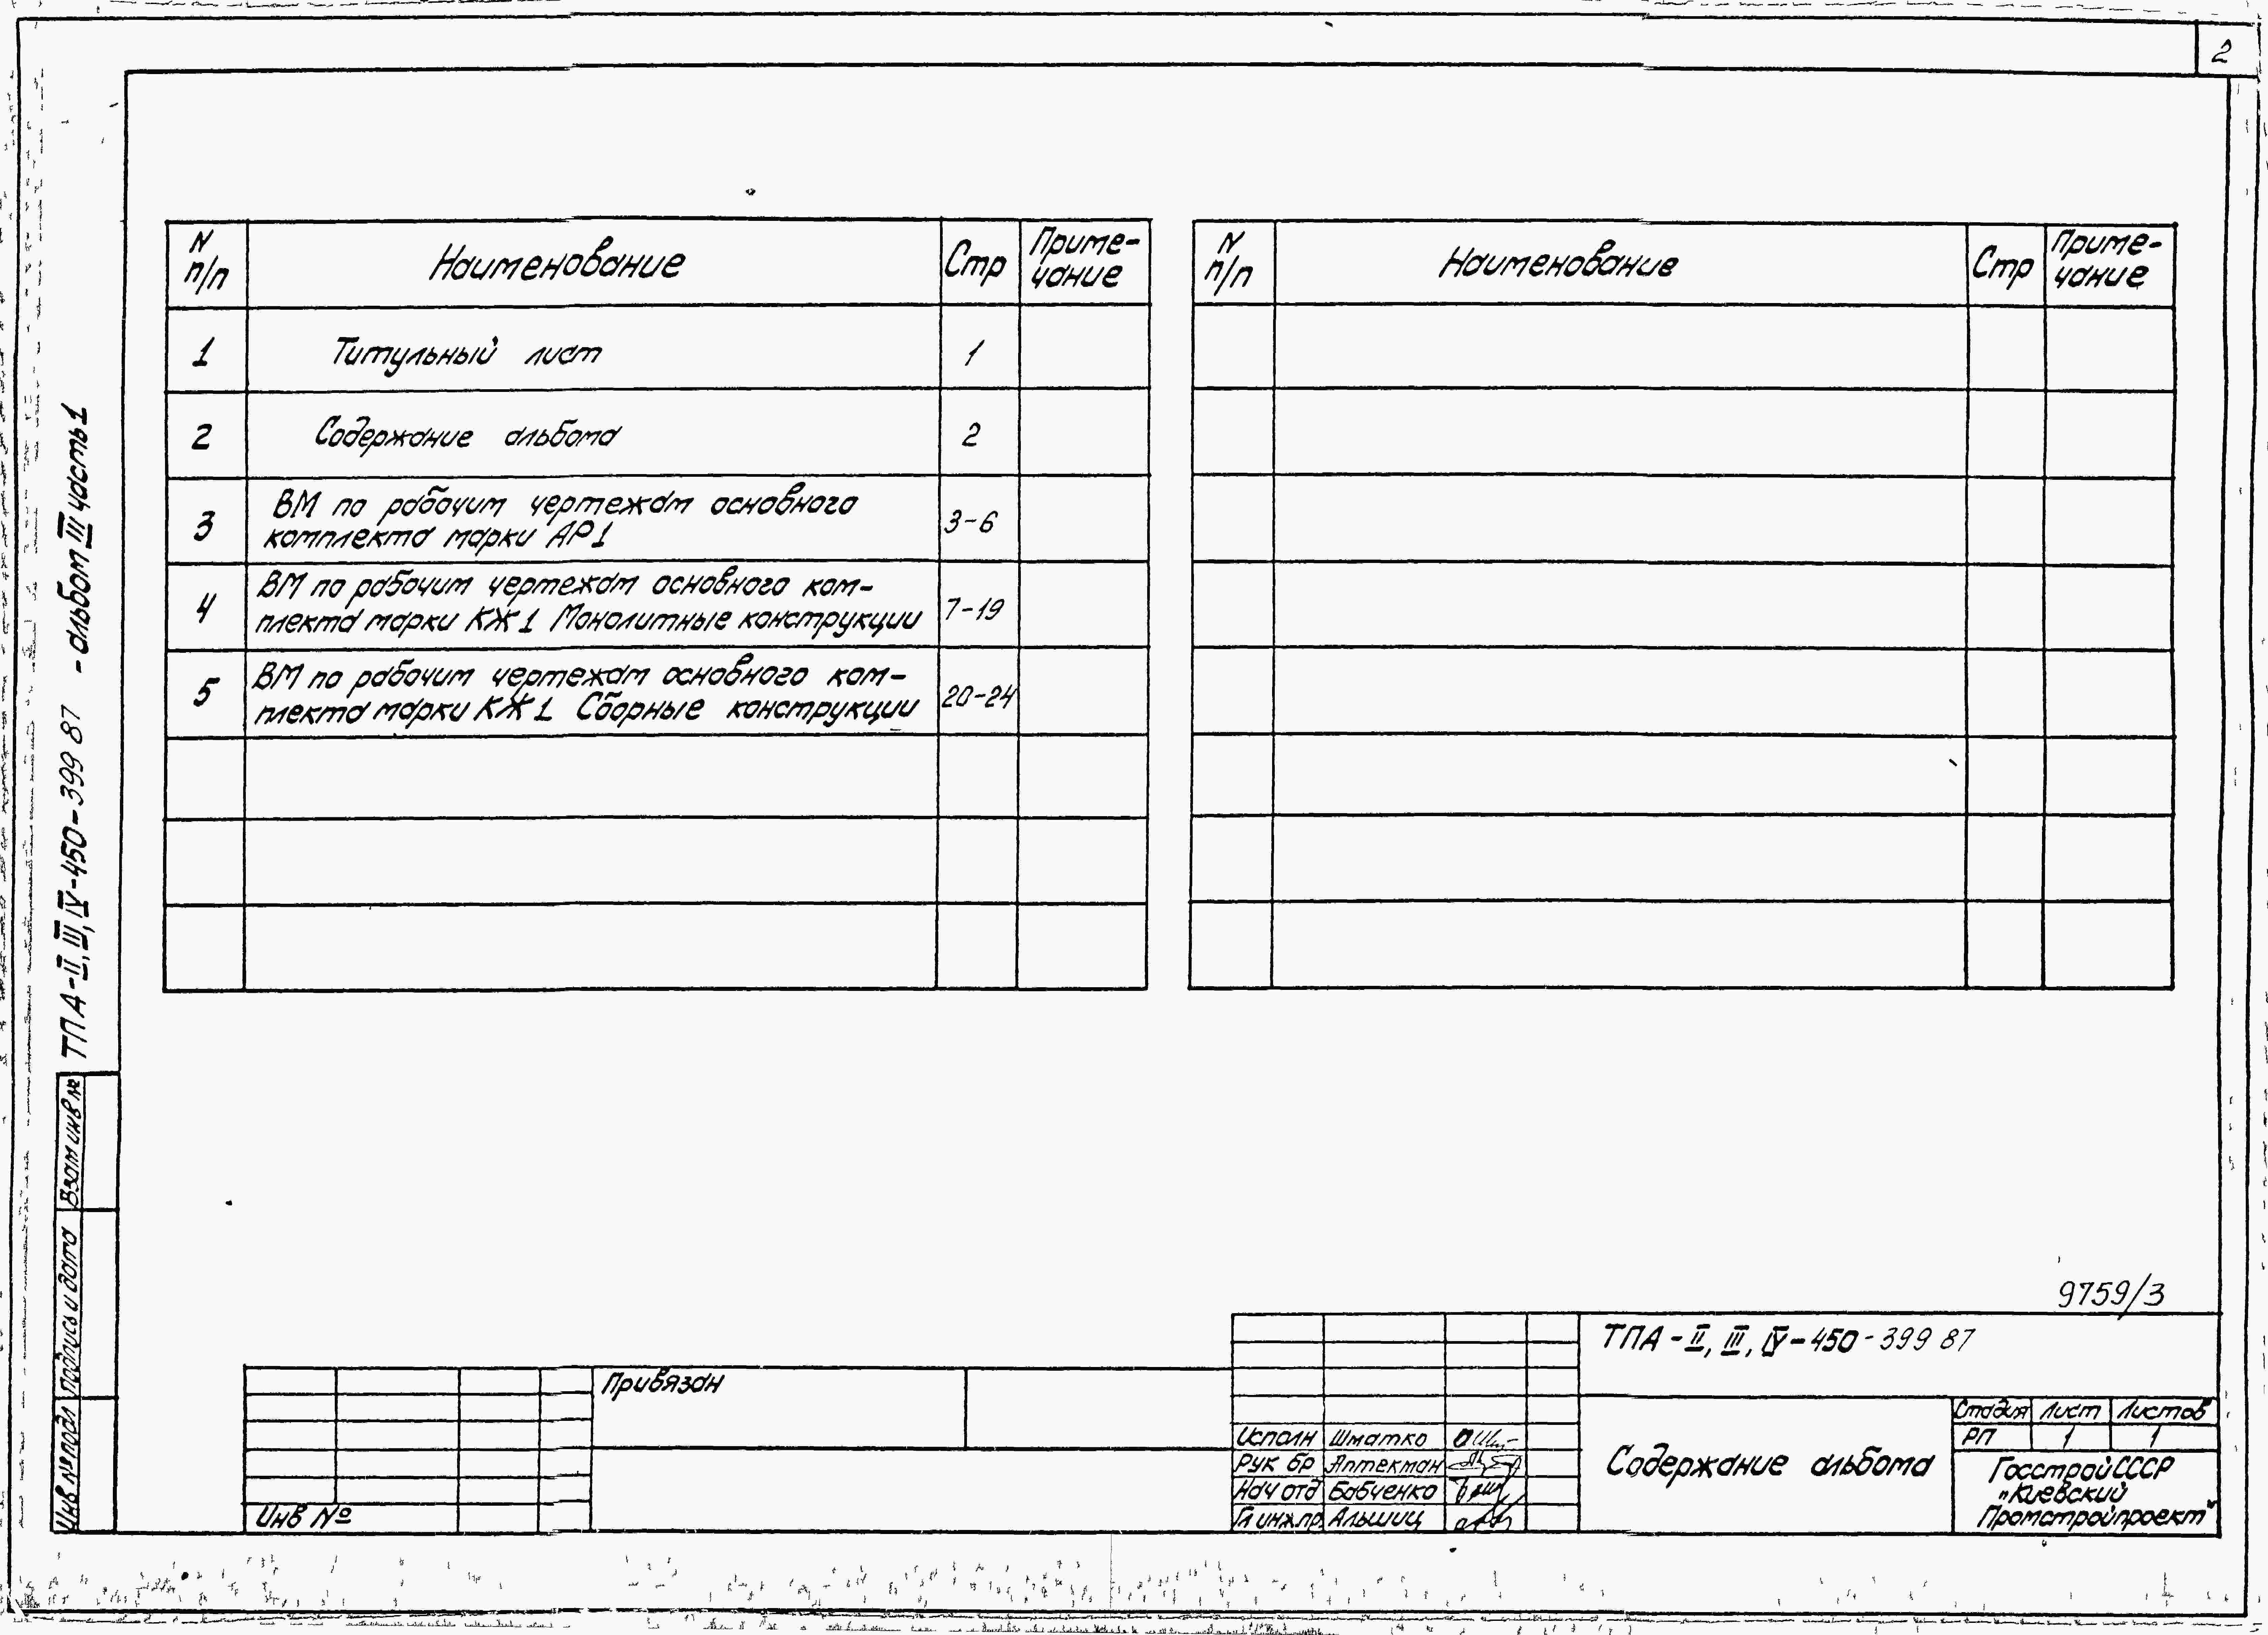 2
N п/п Наименование Стр Приме-
чание
1 Титульный лист 1
2 Содержание альбома 2
3 ВМ по рабочим чертежам основного
комплекта марки АР1 3-6
4 ВМ по рабочим чертежам основного ком-
плекта марки КЖ1 Монолитные конструкции 7-19
5 ВМ по рабочим чертежам основного ком-
плекта марки КЖ1 Сборные конструкции 20-24
N п/п Наименование Стр Приме-
чание
ТПА-II, III, IV-450-399 87 - альбом III часть 1
Взам инв №
Подпись и дата
Инв № подл
9759/3
Привязан
Инв №
ТПА-II, III, IV-450-399 87
Исполн Шматко
Рук бр Аптекман
Нач отд Бабченко
Гл инж.пр. Альшиц
Содержание альбома
Стадия Лист Листов
РП 1 1
Госстрой СССР
"Киевский
Промстройпроект"